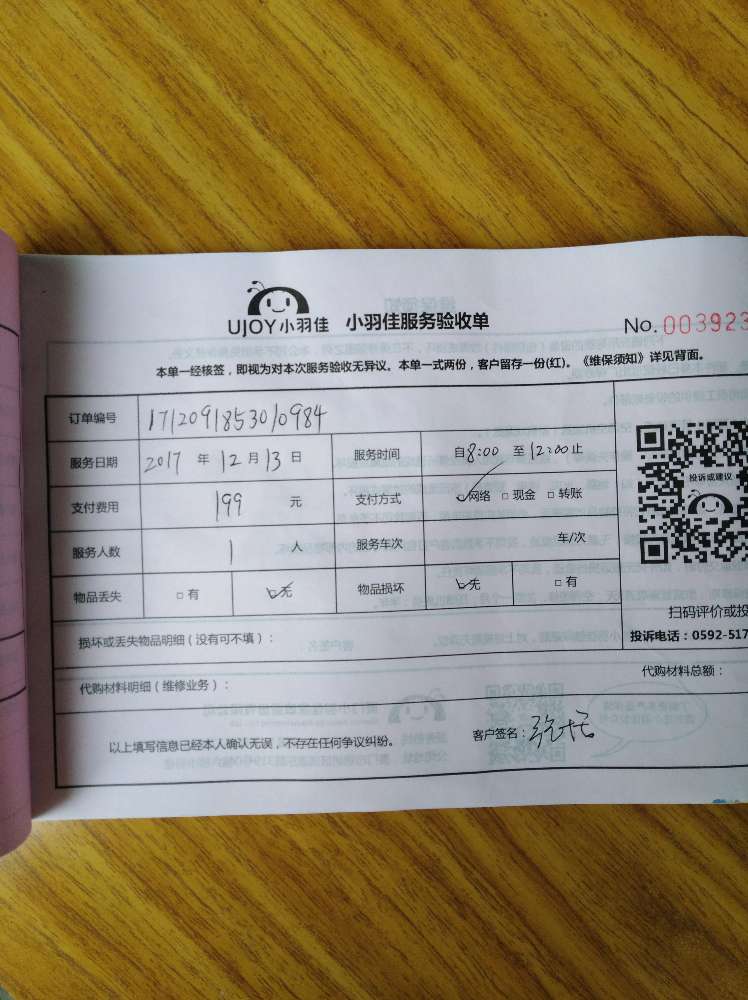 UJOY小羽佳 小羽佳服务验收单 No.003923
本单一经核签，即视为对本次服务验收无异议。本单一式两份，客户留存一份(红)。《维保须知》详见背面。
订单编号 1712091853010984
服务日期 2017 年 12 月 13 日 服务时间 自 8:00 至 12:00 止
支付费用 199 元 支付方式 ☑网络 □现金 □转账
投诉或建议
服务人数 1 人 服务车次 车/次
物品丢失 □有 ☑无 物品损坏 ☑无 □有
扫码评价或投
损坏或丢失物品明细（没有可不填）： 投诉电话：0592-517
代购材料明细（维修业务）： 代购材料总额：
以上填写信息已经本人确认无误，不存在任何争议纠纷。 客户签名：